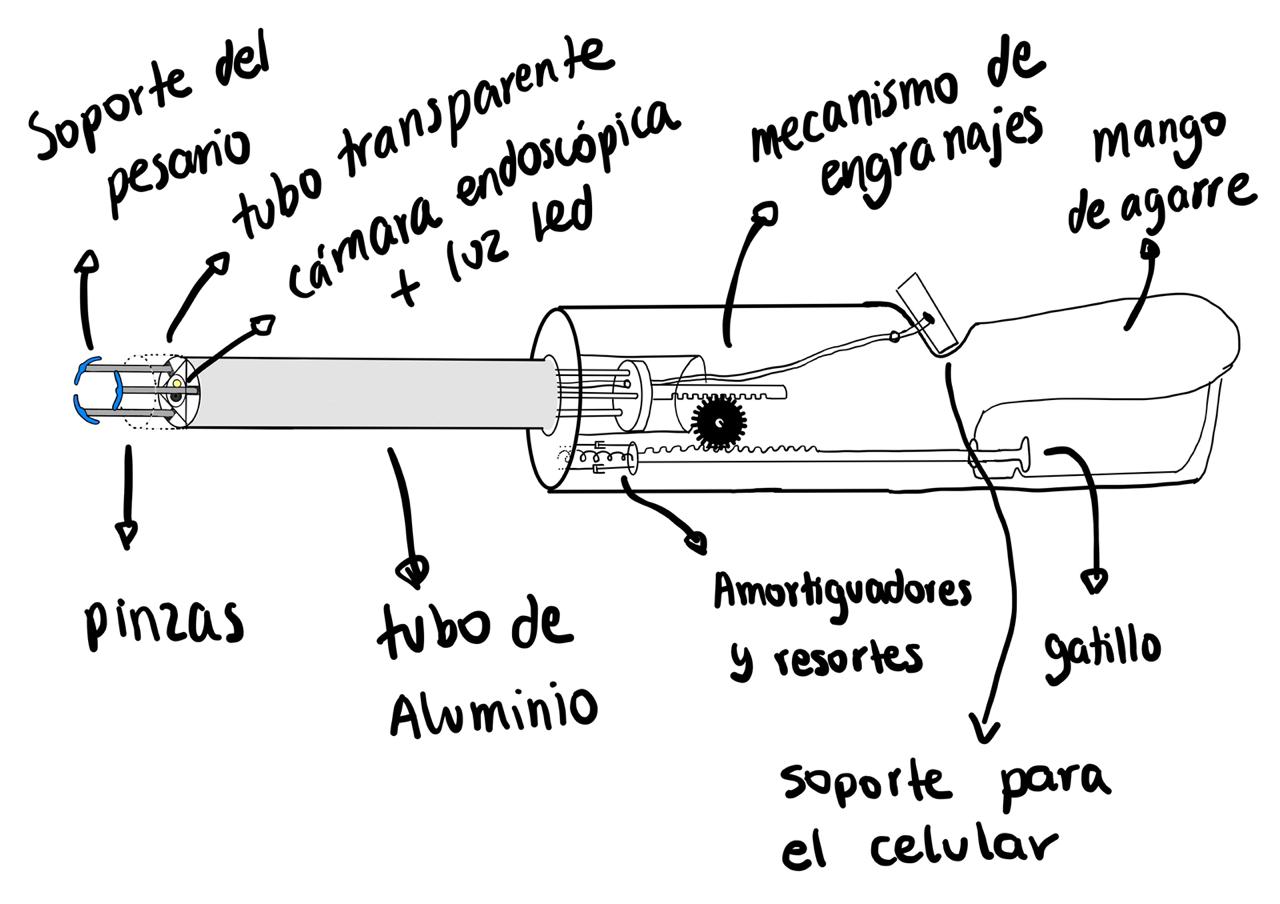 Soporte del
pesario
tubo transparente
cámara endoscópica
+ luz led
mecanismo de
engranajes
mango
de agarre
pinzas
tubo de
Aluminio
Amortiguadores
y resortes
gatillo
soporte para
el celular